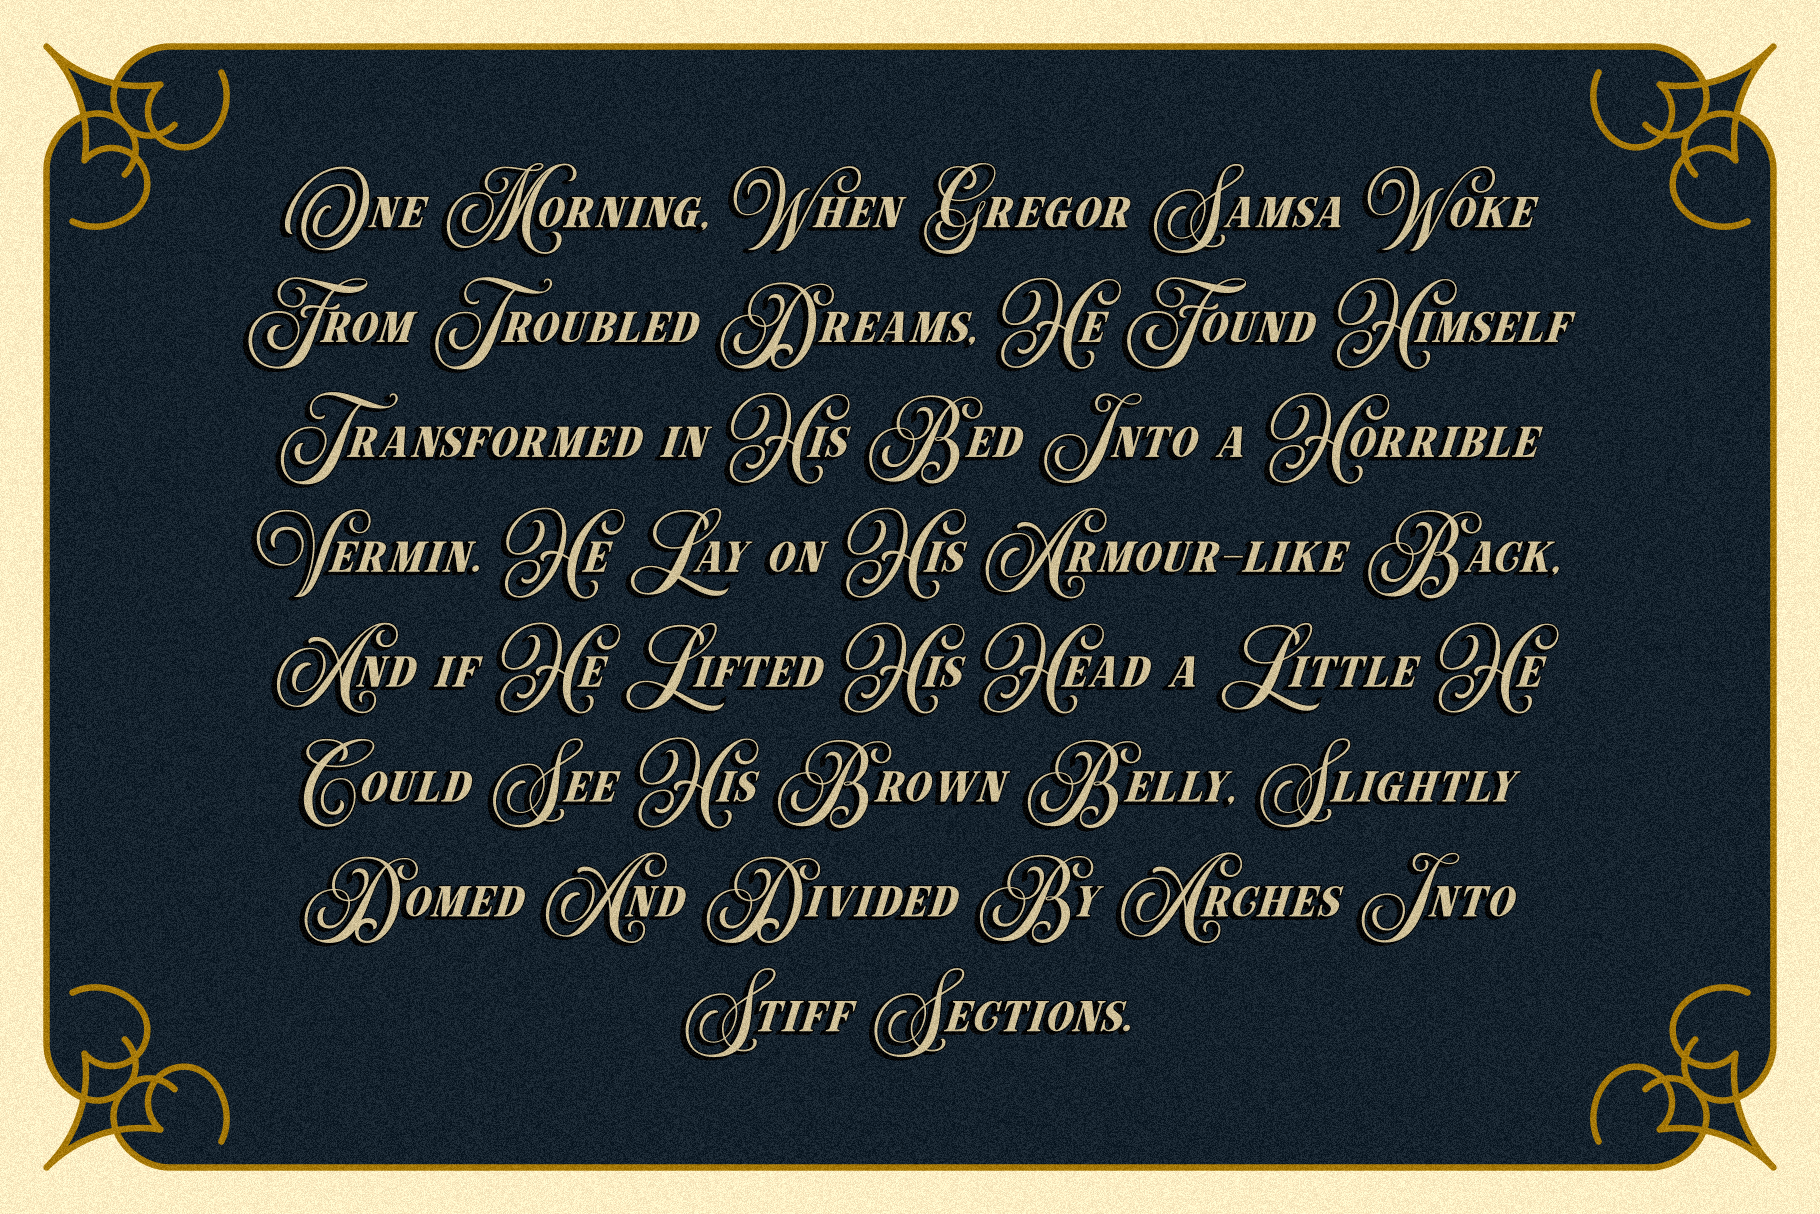 One Morning, When Gregor Samsa Woke
From Troubled Dreams, He Found Himself
Transformed in His Bed Into a Horrible
Vermin. He Lay on His Armour-like Back,
And if He Lifted His Head a Little He
Could See His Brown Belly, Slightly
Domed And Divided By Arches Into
Stiff Sections.